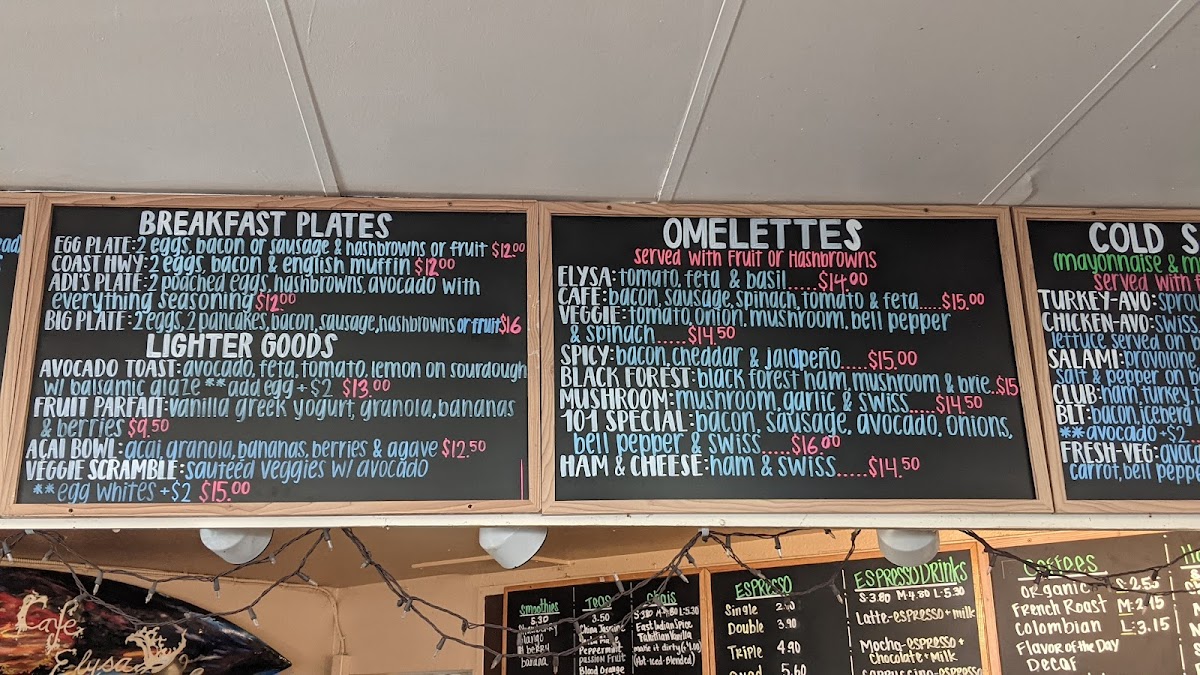 BREAKFAST PLATES
EGG PLATE: 2 eggs, bacon or sausage & hashbrowns or fruit $12.00
COAST HWY: 2 eggs, bacon & english muffin $12.00
ADI'S PLATE: 2 poached eggs, hashbrowns, avocado with
everything seasoning $12.00
BIG PLATE: 2 eggs, 2 pancakes, bacon, sausage, hashbrowns or fruit $16
LIGHTER GOODS
AVOCADO TOAST: avocado, feta, tomato, lemon on sourdough
w/ balsamic glaze **add egg +$2 $13.00
FRUIT PARFAIT: vanilla greek yogurt, granola, bananas
& berries $9.50
AÇAI BOWL: acai, granola, bananas, berries & agave $12.50
VEGGIE SCRAMBLE: sautéed veggies w/ avocado
**egg whites +$2 $15.00
OMELETTES
served with Fruit or Hashbrowns
ELYSA: tomato, feta & basil.....$14.00
CAFE: bacon, sausage, spinach, tomato & feta....$15.00
VEGGIE: tomato, onion, mushroom, bell pepper
& spinach.....$14.50
SPICY: bacon, cheddar & jalapeño.....$15.00
BLACK FOREST: black forest ham, mushroom & brie..$15
MUSHROOM: mushroom, garlic & swiss.....$14.50
101 SPECIAL: bacon, sausage, avocado, onions,
bell pepper & swiss.....$16.00
HAM & CHEESE: ham & swiss.....$14.50
COLD S
(mayonnaise & m
served with f
TURKEY-AVO: spro
CHICKEN-AVO: swiss
lettuce served on
SALAMI: provolone
salt & pepper on
CLUB: ham, turkey,
BLT: bacon, iceberg
**avocado +$2
FRESH-VEG: avoca
carrot, bell peppe
Cafe
Elysa
Smoothies
5.30
berry
banana
Teas
3.50
China Jasmine
Peppermint
Passion Fruit
Blood Orange
Chais
S:3.80 M:4.80 L:5.30
East Indian Spice
Tahitian Vanilla
make it dirty
(Hot-Iced-Blended)
ESPRESSO
Single
Double 3.90
Triple 4.90
Quad 5.60
ESPRESSO DRINKS
S:3.80 M:4.80 L:5.30
Latte-espresso + milk
Mocha-espresso +
chocolate + milk
cappuccino-espresso
Coffees
Organic S:2.55
French Roast M:2.75
Colombian L:3.15
Flavor of the Day
Decaf